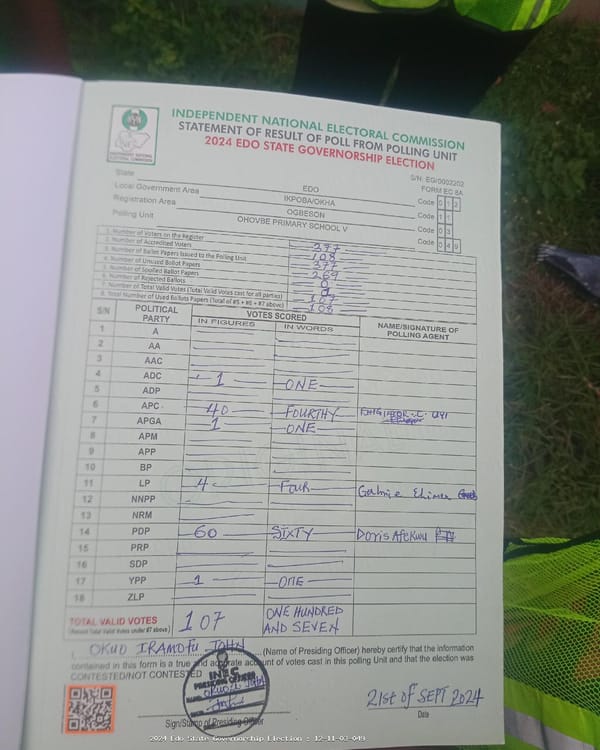 INDEPENDENT NATIONAL ELECTORAL COMMISSION
STATEMENT OF RESULT OF POLL FROM POLLING UNIT
2024 EDO STATE GOVERNORSHIP ELECTION
S/N: EG/0002202
FORM EC 8A
State EDO Code 0 1 2
Local Government Area IKPOBA/OKHA Code 1 1
Registration Area OGBESON Code 0 3
Polling Unit OHOVBE PRIMARY SCHOOL V Code 0 4 9
1. Number of Voters on the Register 377
2. Number of Accredited Voters 108
3. Number of Ballot Papers Issued to the Polling Unit 377
4. Number of Unused Ballot Papers 269
5. Number of Spoiled Ballot Papers 0
6. Number of Rejected Ballots
7. Number of Total Valid Votes (Total Valid Votes cast for all parties) 107
8. Total Number of Used Ballots Papers (Total of #5 + #6 + #7 above) 108
S/N POLITICAL PARTY VOTES SCORED NAME/SIGNATURE OF POLLING AGENT
IN FIGURES IN WORDS
1 A
2 AA
3 AAC
4 ADC 1 ONE
5 ADP
6 APC 40 FOURTHY
7 APGA 1 ONE
8 APM
9 APP
10 BP
11 LP 4 FOUR
12 NNPP
13 NRM
14 PDP 60 SIXTY Doris Afekwu
15 PRP
16 SDP
17 YPP 1 ONE
18 ZLP
TOTAL VALID VOTES 107 ONE HUNDRED AND SEVEN
I, OKUO IRAMOFU JOHN (Name of Presiding Officer) hereby certify that the information
contained in this form is a true and accurate account of votes cast in this polling Unit and that the election was
CONTESTED/NOT CONTESTED
INEC
PRESIDING OFFICER
21st of SEPT 2024
Sign/Stamp of Presiding Officer Date
2024 Edo State Governorship Election : 12-11-03-049